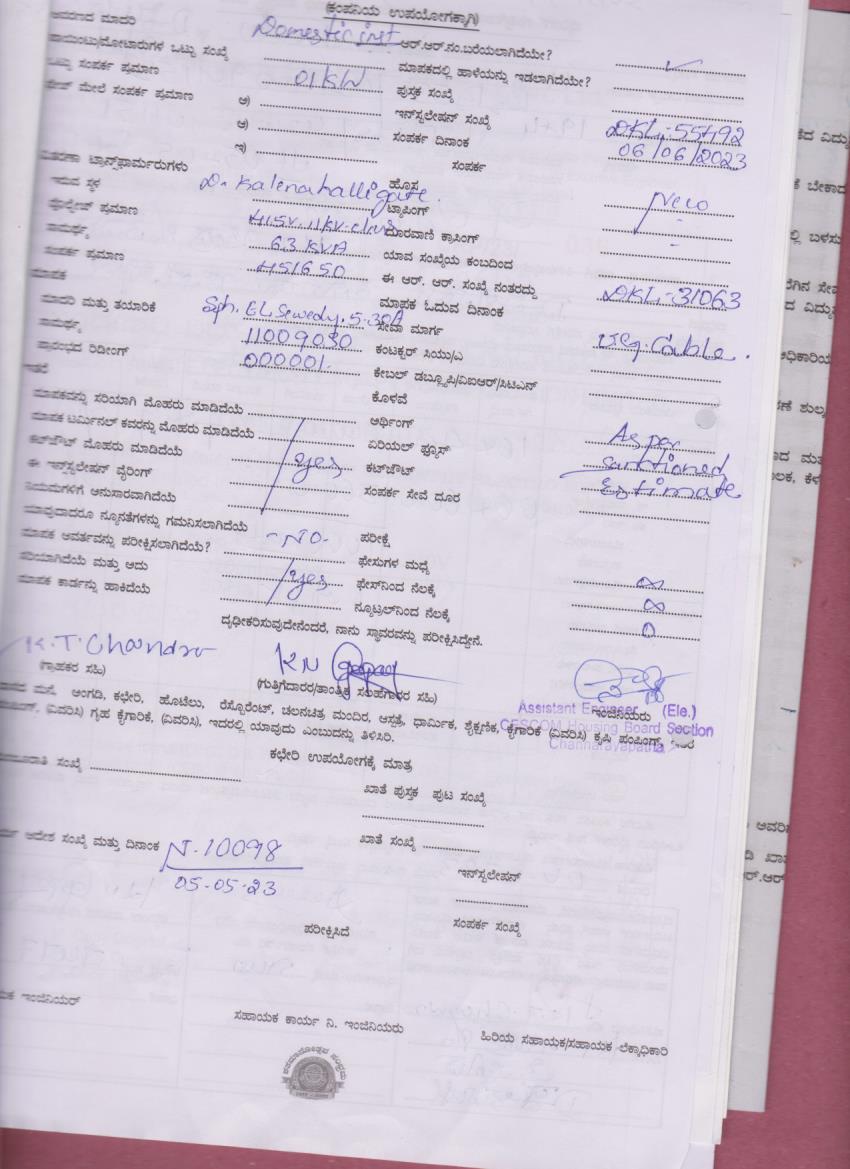 (ಕಂಪನಿಯ ಉಪಯೋಗಕ್ಕಾಗಿ)
ಆವರಣದ ಮಾದರಿ Domestic inst ಆರ್.ಆರ್.ನಂ.ಬರೆಯಲಾಗಿದೆಯೇ? ✓
ಪಾಯಿಂಟು/ಮೋಟಾರುಗಳ ಒಟ್ಟು ಸಂಖ್ಯೆ ಮಾಪಕದಲ್ಲಿ ಹಾಳೆಯನ್ನು ಇಡಲಾಗಿದೆಯೇ?
ಒಟ್ಟು ಸಂಪರ್ಕ ಪ್ರಮಾಣ 01 KW ಪುಸ್ತಕ ಸಂಖ್ಯೆ
ಫೇಜ್ ಮೇಲೆ ಸಂಪರ್ಕ ಪ್ರಮಾಣ ಅ) ಇನ್‌ಸ್ಟಲೇಷನ್ ಸಂಖ್ಯೆ DKL-55492
ಆ) ಸಂಪರ್ಕ ದಿನಾಂಕ 06/06/2023
ಇ) ಸಂಪರ್ಕ
ವಿತರಣಾ ಟ್ರಾನ್ಸ್‌ಫಾರ್ಮರುಗಳು ಹೊಸ New
ಇರುವ ಸ್ಥಳ D. Kalenahalli gate. ಟ್ಯಾಪಿಂಗ್ -
ವೋಲ್ಟೇಜ್ ಪ್ರಮಾಣ 415V. 11KV-class ದೂರವಾಣಿ ಕ್ರಾಸಿಂಗ್ -
ಸಾಮರ್ಥ್ಯ 63 KVA ಯಾವ ಸಂಖ್ಯೆಯ ಕಂಬದಿಂದ
ಸಂಪರ್ಕ ಪ್ರಮಾಣ 451650 ಈ ಆರ್. ಆರ್. ಸಂಖ್ಯೆ ನಂತರದ್ದು DKL-31063
ಮಾಪಕ ಮಾಪಕ ಓದುವ ದಿನಾಂಕ
ಮಾದರಿ ಮತ್ತು ತಯಾರಿಕೆ Sph. EL Sewedy. 5-30A ಸೇವಾ ಮಾರ್ಗ Cable.
ಸಾಮರ್ಥ್ಯ 11009030 ಕಂಟಕ್ಟರ್ ಸಿಯು/ಎ
ಪ್ರಾರಂಭದ ರಿಡೀಂಗ್ 000001. ಕೇಬಲ್ ಡಬ್ಲ್ಯೂಪಿ/ವಿಐಆರ್/ಸಿಟಿಎಸ್
ಇತರೆ ಕೊಳವೆ
ಮಾಪಕವನ್ನು ಸರಿಯಾಗಿ ಮೊಹರು ಮಾಡಿದೆಯೆ ಅರ್ಥಿಂಗ್ As per
ಮಾಪಕ ಟರ್ಮಿನಲ್ ಕವರನ್ನು ಮೊಹರು ಮಾಡಿದೆಯೆ ಏರಿಯಲ್ ಫ್ಯೂಸ್ Sanctioned
ಕಟ್‌ಔಟ್ ಮೊಹರು ಮಾಡಿದೆಯೆ yes ಕಟ್‌ಔಟ್ Estimate
ಈ ಇನ್‌ಸ್ಟಲೇಷನ್ ವೈರಿಂಗ್ ಸಂಪರ್ಕ ಸೇವೆ ದೂರ
ನಿಯಮಗಳಿಗೆ ಅನುಸಾರವಾಗಿದೆಯೆ
ಯಾವುದಾದರೂ ನ್ಯೂನತೆಗಳನ್ನು ಗಮನಿಸಲಾಗಿದೆಯೆ - NO - ಪರೀಕ್ಷೆ
ಮಾಪಕ ಆವರ್ತವನ್ನು ಪರೀಕ್ಷಿಸಲಾಗಿದೆಯೆ? ಫೇಸುಗಳ ಮಧ್ಯೆ ∞
ಸರಿಯಾಗಿದೆಯೆ ಮತ್ತು ಅದು yes ಫೇಸ್‌ನಿಂದ ನೆಲಕ್ಕೆ ∞
ಮಾಪಕ ಕಾರ್ಡನ್ನು ಹಾಕಿದೆಯೆ ನ್ಯೂಟ್ರಲ್‌ನಿಂದ ನೆಲಕ್ಕೆ 0
ದೃಢೀಕರಿಸುವುದೇನೆಂದರೆ, ನಾನು ಸ್ಥಾವರವನ್ನು ಪರೀಕ್ಷಿಸಿದ್ದೇನೆ.
K.T. Chandra KN
(ಗ್ರಾಹಕರ ಸಹಿ) (ಗುತ್ತಿಗೆದಾರರ/ತಾಂತ್ರಿಕ ಸಲಹೆಗಾರರ ಸಹಿ) ಇಂಜಿನಿಯರು
Assistant Engineer (Ele.)
CESCOM Housing Board Section
Channarayapatna
ಮನೆ, ಅಂಗಡಿ, ಕಛೇರಿ, ಹೊಟೆಲು, ರೆಸ್ಟೊರೆಂಟ್, ಚಲನಚಿತ್ರ ಮಂದಿರ, ಆಸ್ಪತ್ರೆ, ಧಾರ್ಮಿಕ, ಶೈಕ್ಷಣಿಕ, ಕೈಗಾರಿಕೆ (ವಿವರಿಸಿ) ಕೃಷಿ ಪಂಪಿಂಗ್,
(ವಿವರಿಸಿ) ಗೃಹ ಕೈಗಾರಿಕೆ, (ವಿವರಿಸಿ), ಇದರಲ್ಲಿ ಯಾವುದು ಎಂಬುದನ್ನು ತಿಳಿಸಿರಿ.
ಕಛೇರಿ ಉಪಯೋಗಕ್ಕೆ ಮಾತ್ರ
ಸಂಖ್ಯೆ ಖಾತೆ ಪುಸ್ತಕ ಪುಟ ಸಂಖ್ಯೆ
ಆದೇಶ ಸಂಖ್ಯೆ ಮತ್ತು ದಿನಾಂಕ N-10098 ಖಾತೆ ಸಂಖ್ಯೆ
05-05-23 ಇನ್‌ಸ್ಟಲೇಷನ್
ಪರೀಕ್ಷಿಸಿದೆ ಸಂಪರ್ಕ ಸಂಖ್ಯೆ
ಇಂಜಿನಿಯರ್ ಸಹಾಯಕ ಕಾರ್ಯ ನಿ. ಇಂಜಿನಿಯರು ಹಿರಿಯ ಸಹಾಯಕ/ಸಹಾಯಕ ಲೆಕ್ಕಾಧಿಕಾರಿ